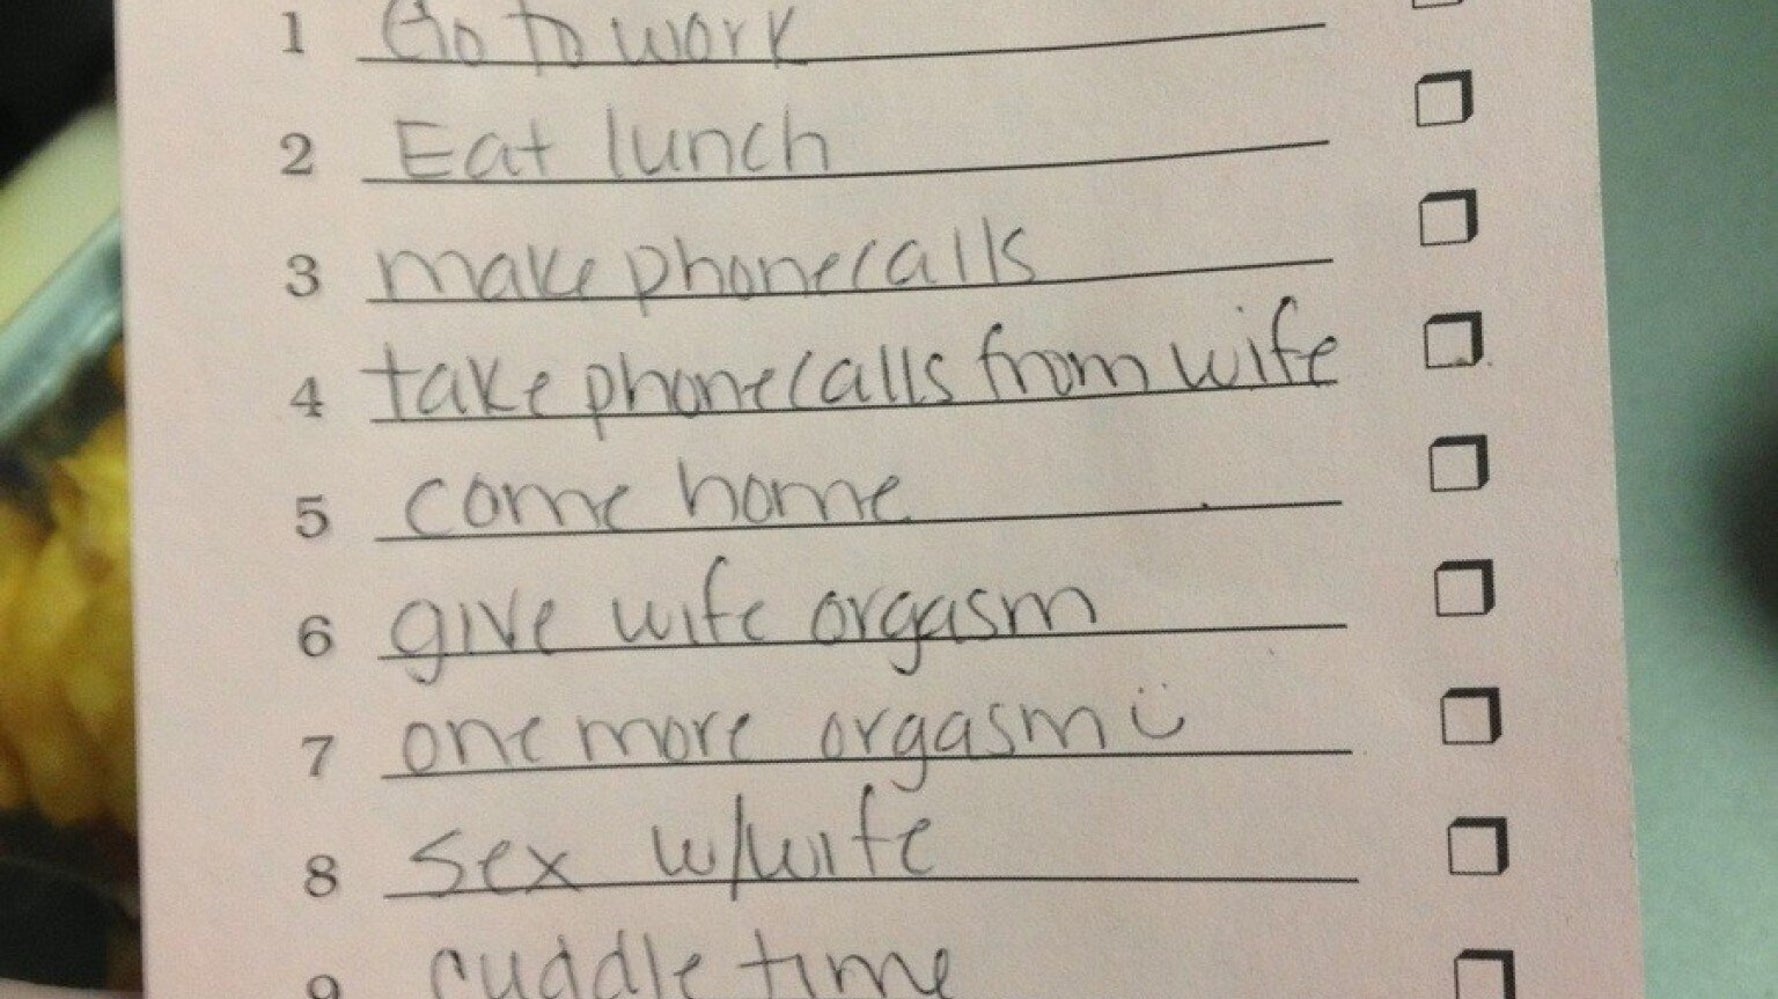 1 Go to work
2 Eat lunch
3 make phone calls
4 take phone calls from wife
5 come home
6 give wife orgasm
7 one more orgasm ü
8 sex w/wife
9 cuddle time